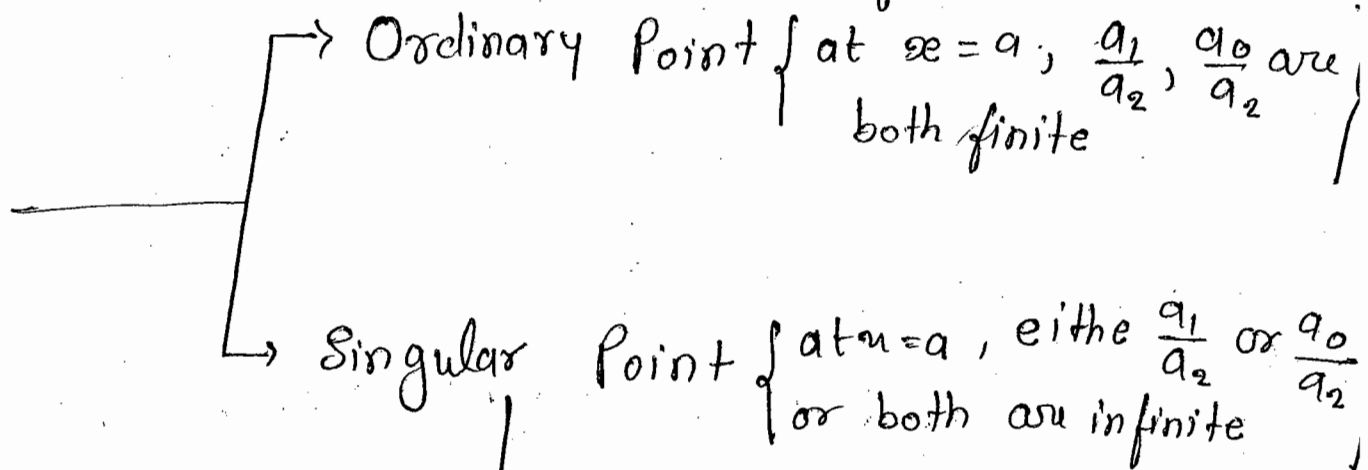 → Ordinary Point { at x = a ; a₁/a₂ , a₀/a₂ are
both finite }
→ Singular Point { at x = a , eithe a₁/a₂ or a₀/a₂
or both are infinite